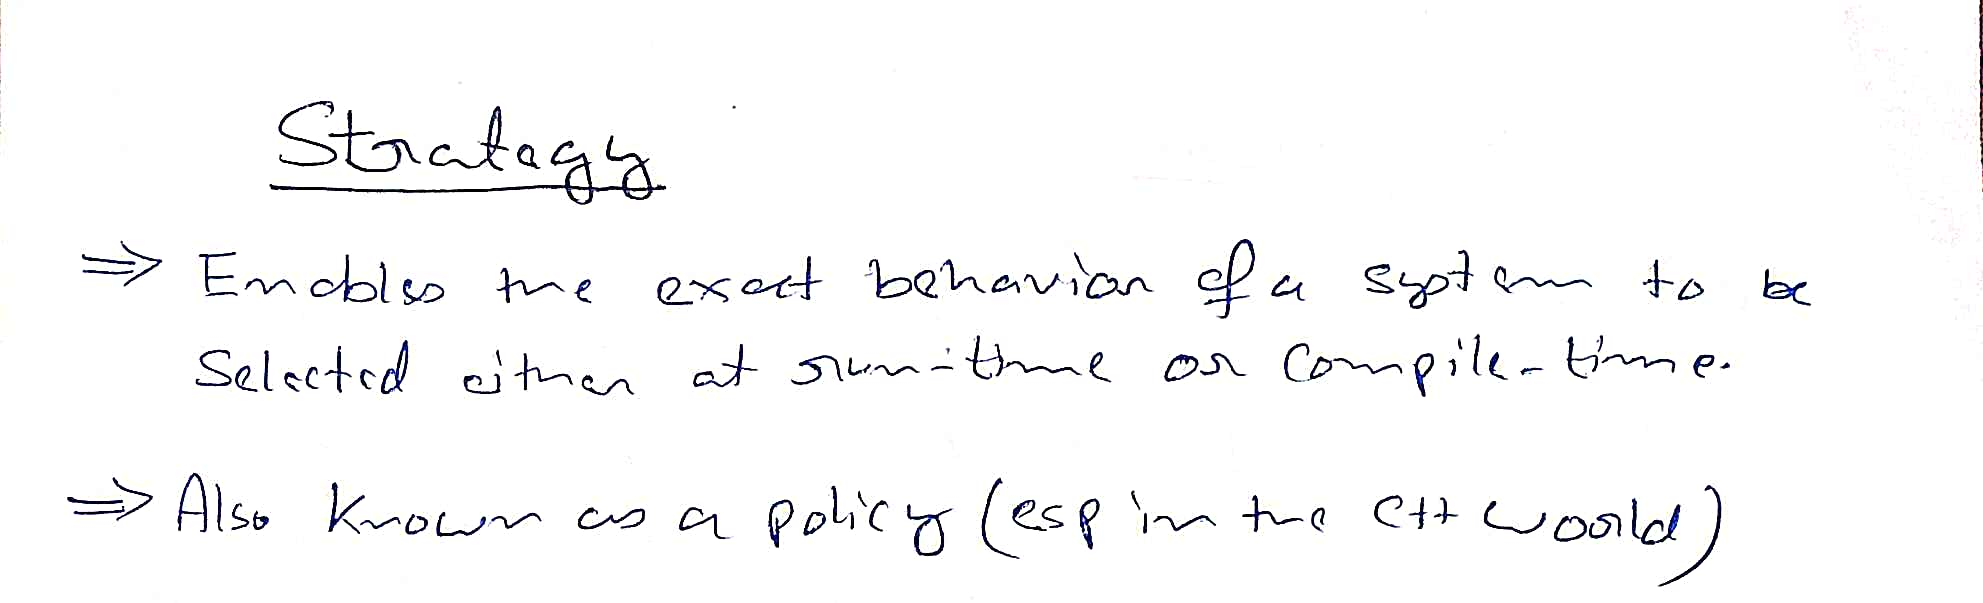 Strategy
⇒ Enables the exact behavior of a system to be
Selected either at run-time or Compile-time.
⇒ Also Known as a policy (esp in the C++ world)